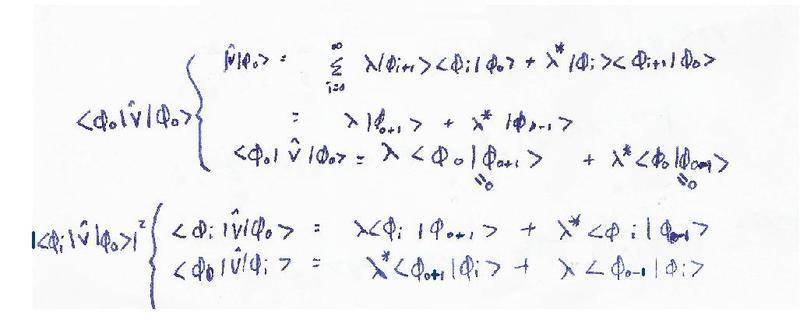 V̂|ϕ₀> = ∑_{i=0}^{∞} λ|ϕᵢ₊₁><ϕᵢ|ϕ₀> + λ*|ϕᵢ><ϕᵢ₊₁|ϕ₀>
<ϕ₀|V̂|ϕ₀> { = λ|ϕ₀₊₁> + λ*|ϕ₀₋₁>
<ϕ₀|V̂|ϕ₀> = λ<ϕ₀|ϕ₀₊₁> + λ*<ϕ₀|ϕ₀₋₁>
=0 =0
|<ϕᵢ|V̂|ϕ₀>|² { <ϕᵢ|V̂|ϕ₀> = λ<ϕᵢ|ϕ₀₊₁> + λ*<ϕᵢ|ϕ₀₋₁>
<ϕ₀|V̂|ϕᵢ> = λ*<ϕ₀₊₁|ϕᵢ> + λ<ϕ₀₋₁|ϕᵢ>